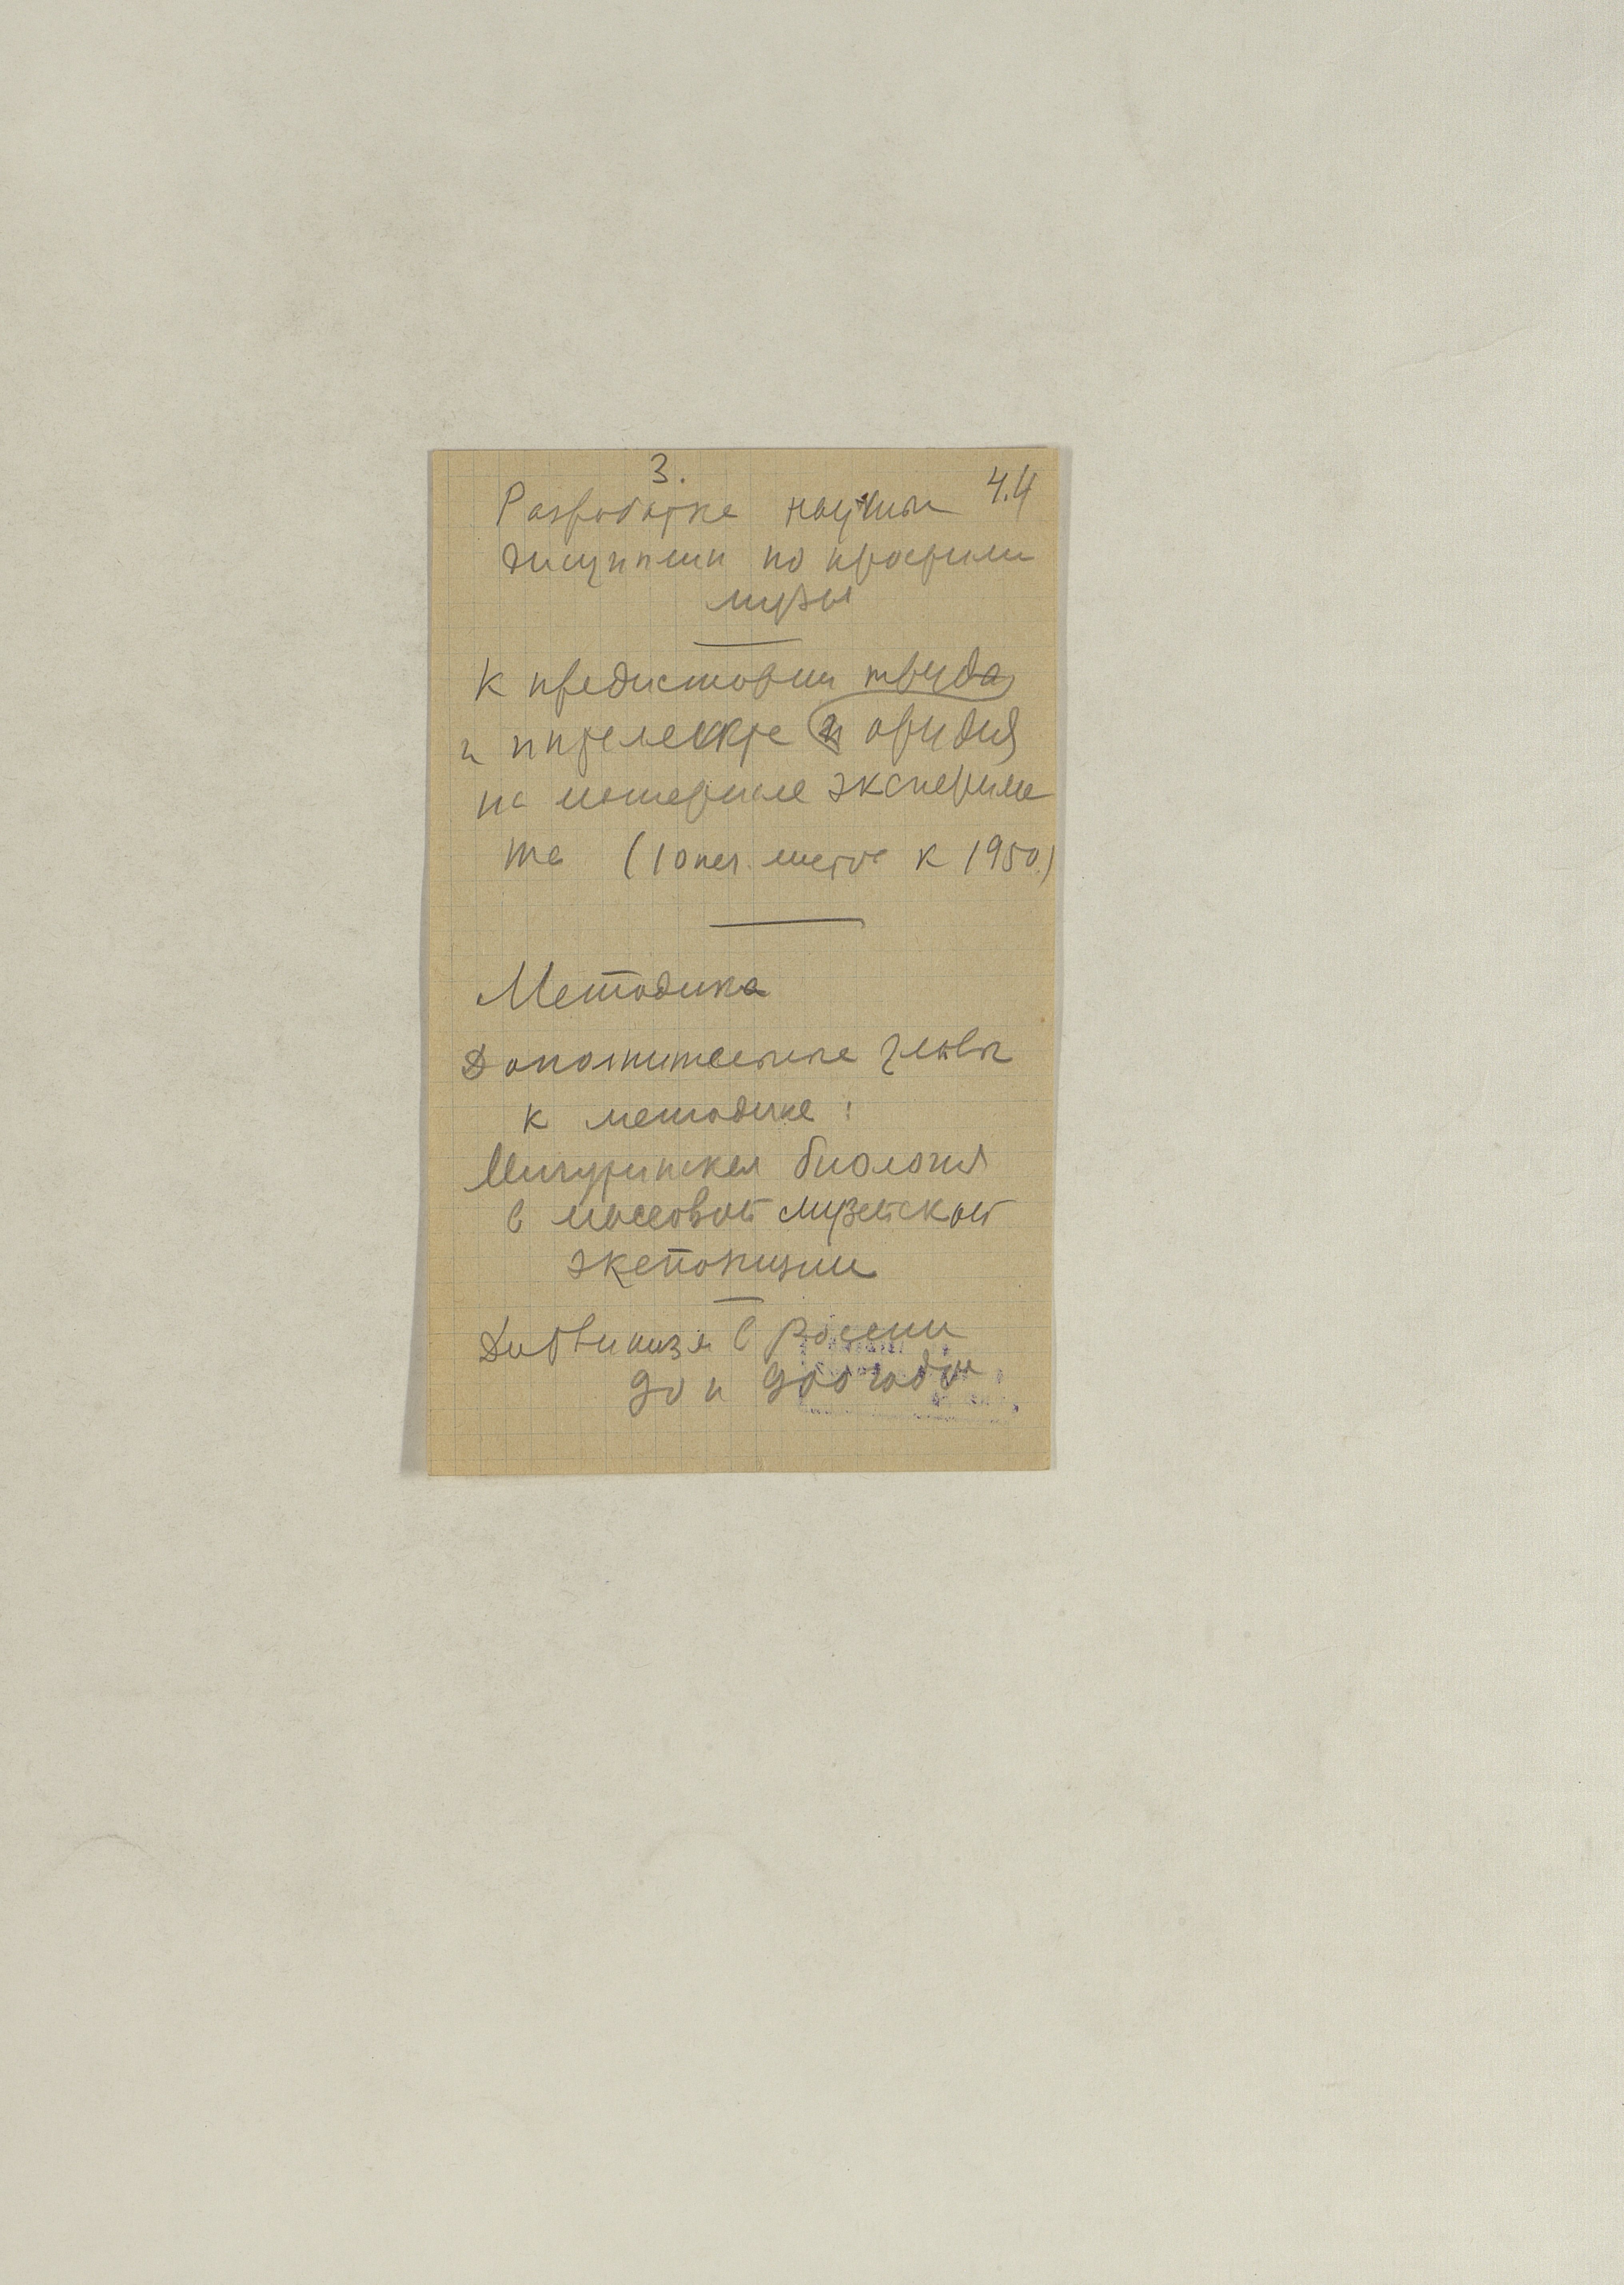 3.
4.4
Разработка научн
дисциплин по профилю
музея
К предистории труда
и интеллекте и орудия
на материале эксперимен
та (10 печ. листов к 1950.)
Методика
Дополнительные главы
к методике:
Мичуринская биология
в массовой музейской
экспозиции
Дарвинизм в России
до и